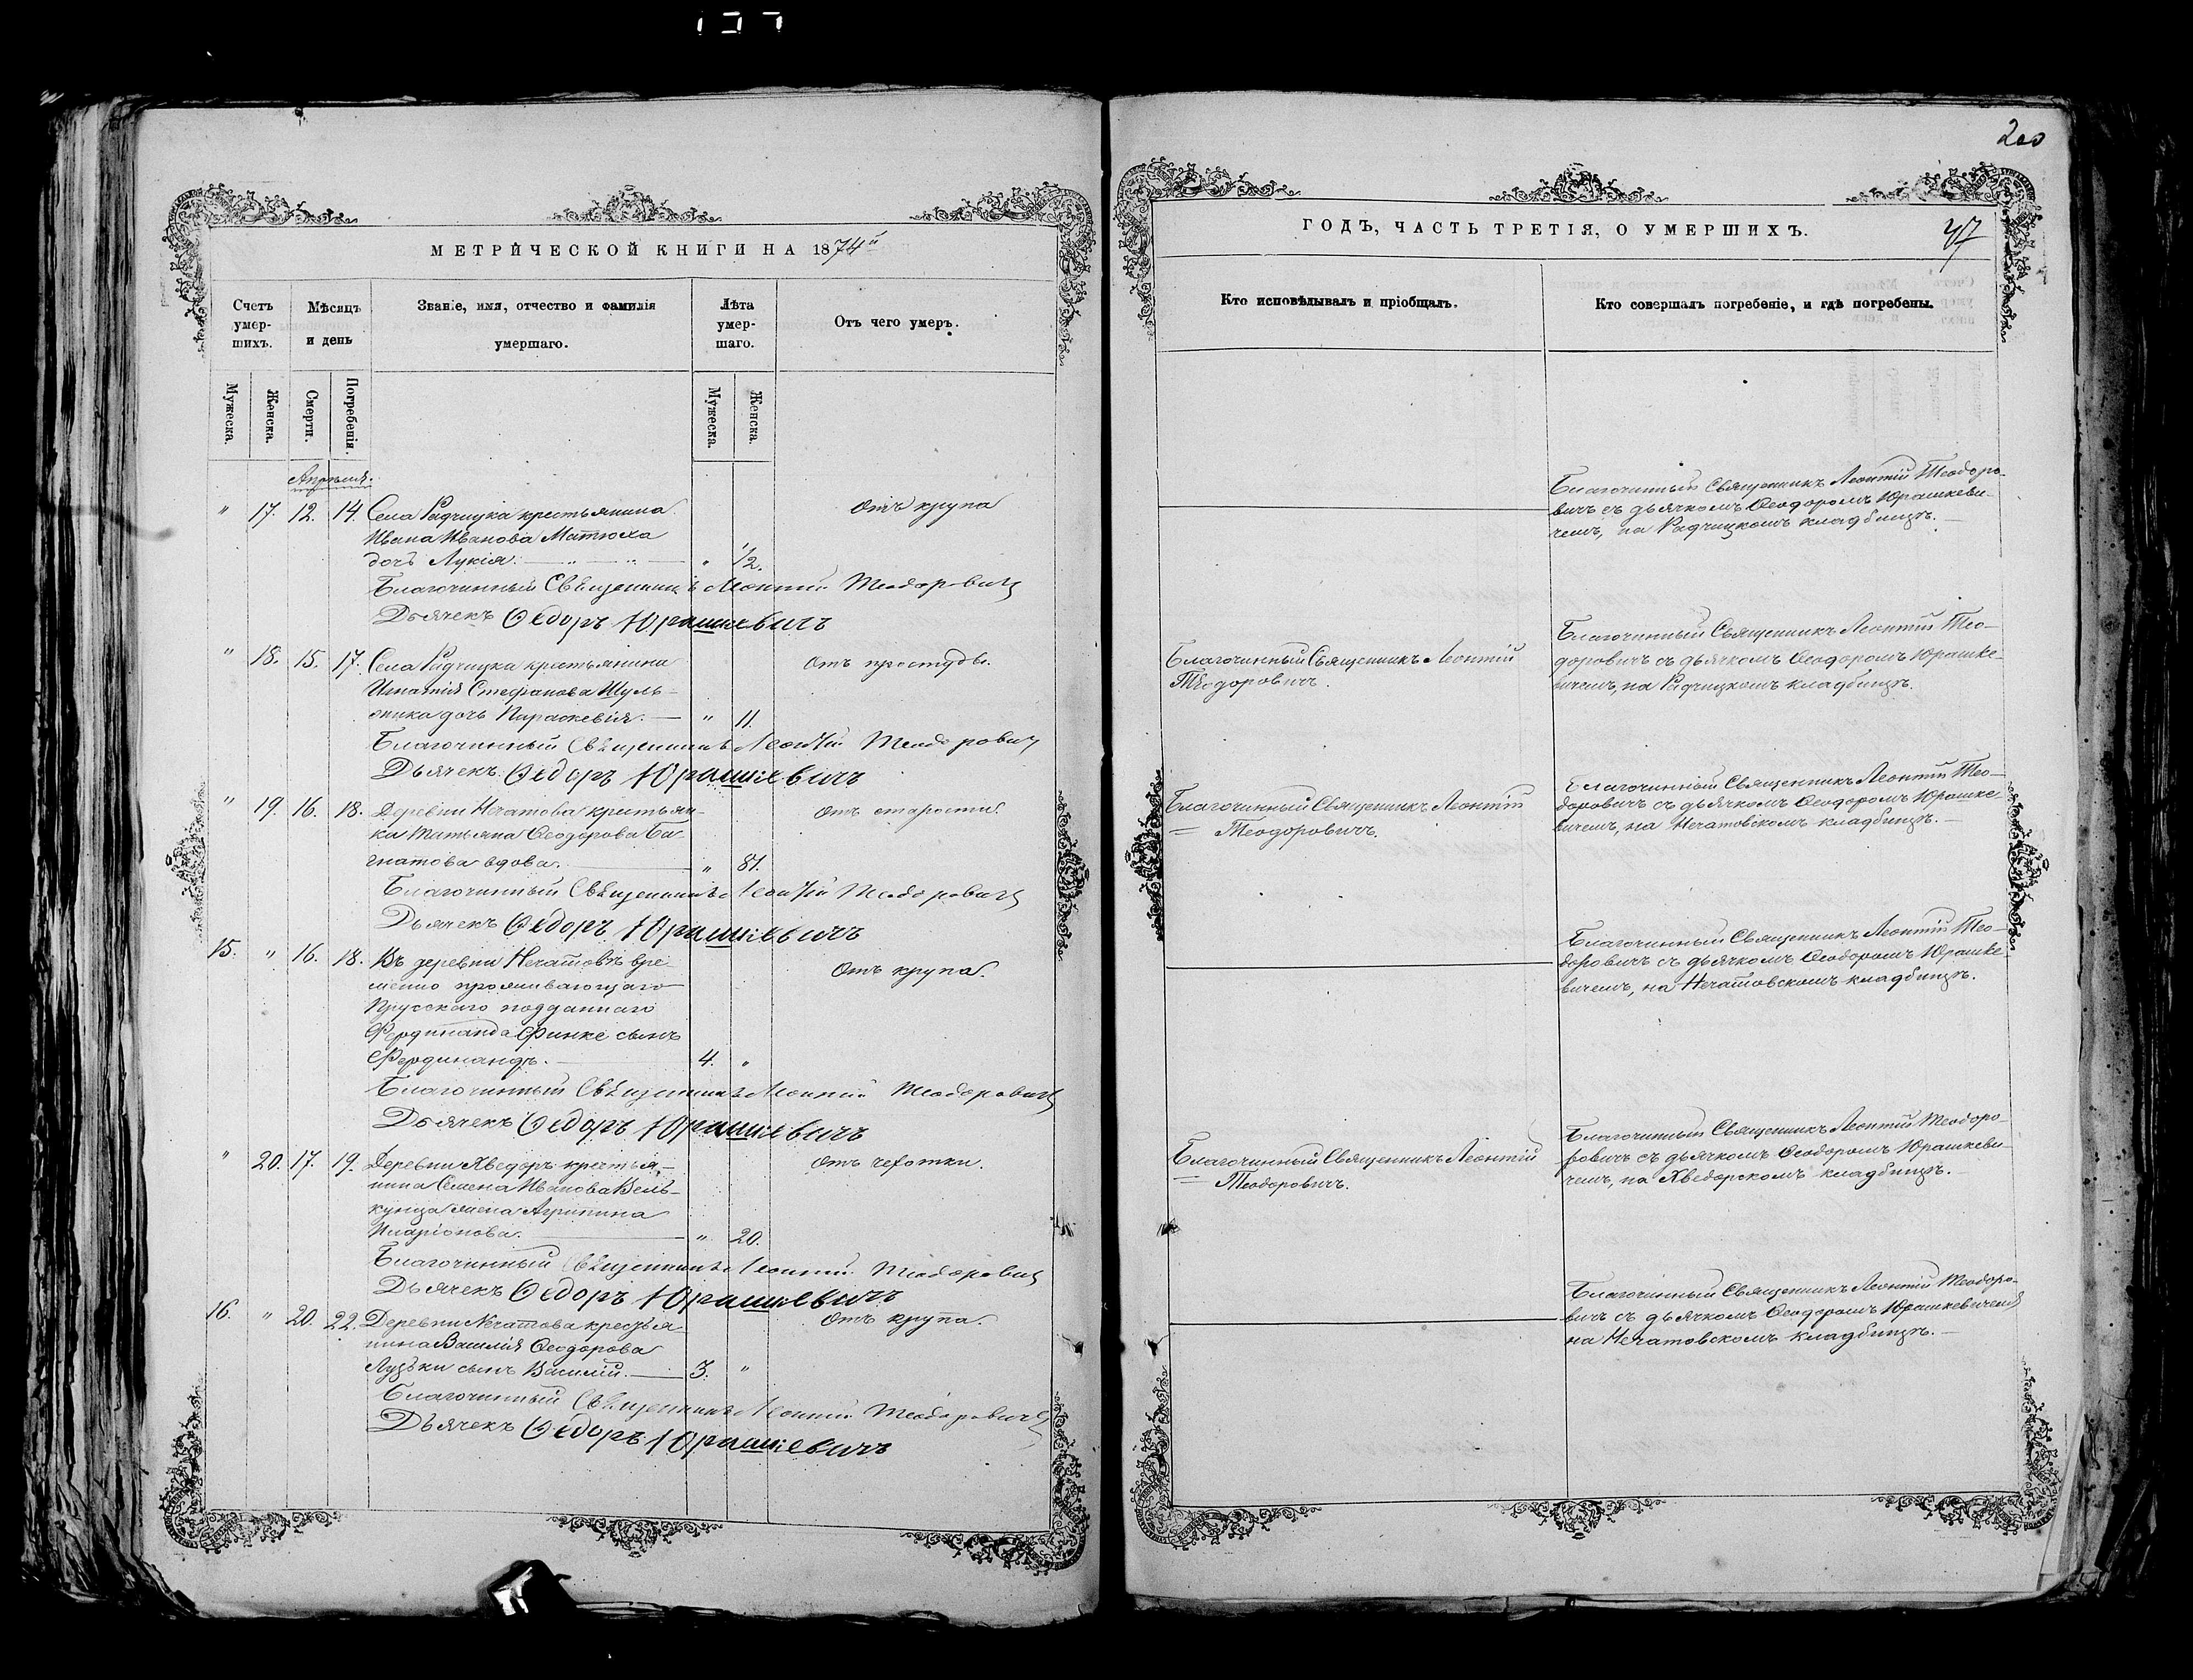 200
МЕТРИЧЕСКОЙ КНИГИ НА 1874й
Счетъ умер-шихъ.
Мѣсяцъ и день
Званіе, имя, отчество и фамилія умершаго.
Лѣта умер-шаго.
Отъ чего умеръ.
Мужеска.
Женска.
Смерти.
Погребенія.
Мужеска.
Женска.
Апрѣля.
" 17. 12. 14. Села Радчицка крестьянина отъ крупа
Ивана Иванова Матюха
дочь Лукія. " 1/2.
Благочинный Священникъ Леонтій Теодоровичъ
Дьячекъ Ѳедоръ Юрашкевичъ
" 18. 15. 17. Села Радчицка крестьянина отъ простуды.
Игнатія Стефанова Шуль-
жика дочь Параскевія. " 11.
Благочинный Священникъ Леонтій Теодоровичъ
Дьячекъ Ѳедоръ Юрашкевичъ
" 19. 16. 18. Деревни Нечатова крестьян- отъ старости.
ка Татьяна Ѳеодорова Ба-
гнатова вдова. " 81.
Благочинный Священникъ Леонтій Теодоровичъ
Дьячекъ Ѳедоръ Юрашкевичъ
15. " 16. 18. Въ деревни Нечатовѣ вре- Отъ крупа.
менно проживающаго
Прусскаго подданнаго
Фердинанда Финке сынъ
Фердинандъ. 4. "
Благочинный Священникъ Леонтій Теодоровичъ
Дьячекъ Ѳедоръ Юрашкевичъ
" 20. 17. 19. Деревни Хведоръ крестья- Отъ чехотки.
нина Семена Иванова Вель-
кунца жена Агрипина
Иларіонова. " 20.
Благочинный Священникъ Леонтій Теодоровичъ
Дьячекъ Ѳедоръ Юрашкевичъ
16. " 20. 22. Деревни Нечатова крестья- Отъ крупа.
нина Василія Ѳеодорова
Лузьки сынъ Василій. 3. "
Благочинный Священникъ Леонтій Теодоровичъ
Дьячекъ Ѳедоръ Юрашкевичъ
ГОДЪ, ЧАСТЬ ТРЕТІЯ, О УМЕРШИХЪ.
Кто исповѣдывалъ и пріобщалъ.
Кто совершалъ погребеніе, и гдѣ погребены.
Благочинный Священникъ Леонтій Теодоро-
вичъ съ дьячкомъ Ѳеодоромъ Юрашкеви-
чемъ, на Радчицкомъ кладбищѣ.
Благочинный Священникъ Леонтій
Теодоровичъ.
Благочинный Священникъ Леонтій Тео-
доровичъ съ дьячкомъ Ѳеодоромъ Юрашке-
вичемъ, на Радчицкомъ кладбищѣ.
Благочинный Священникъ Леонтій
Теодоровичъ.
Благочинный Священникъ Леонтій Тео-
доровичъ съ дьячкомъ Ѳеодоромъ Юрашке-
вичемъ, на Нечатовскомъ кладбищѣ.
Благочинный Священникъ Леонтій Тео-
доровичъ съ дьячкомъ Ѳеодоромъ Юрашке-
вичемъ, на Нечатовскомъ кладбищѣ.
Благочинный Священникъ Леонтій
Теодоровичъ.
Благочинный Священникъ Леонтій Теодоро-
ровичъ съ дьячкомъ Ѳеодоромъ Юрашкеви-
чемъ, на Хведорскомъ кладбищѣ.
Благочинный Священникъ Леонтій Теодоро-
вичъ съ дьячкомъ Ѳеодоромъ Юрашкевичемъ
на Нечатовскомъ кладбищѣ.